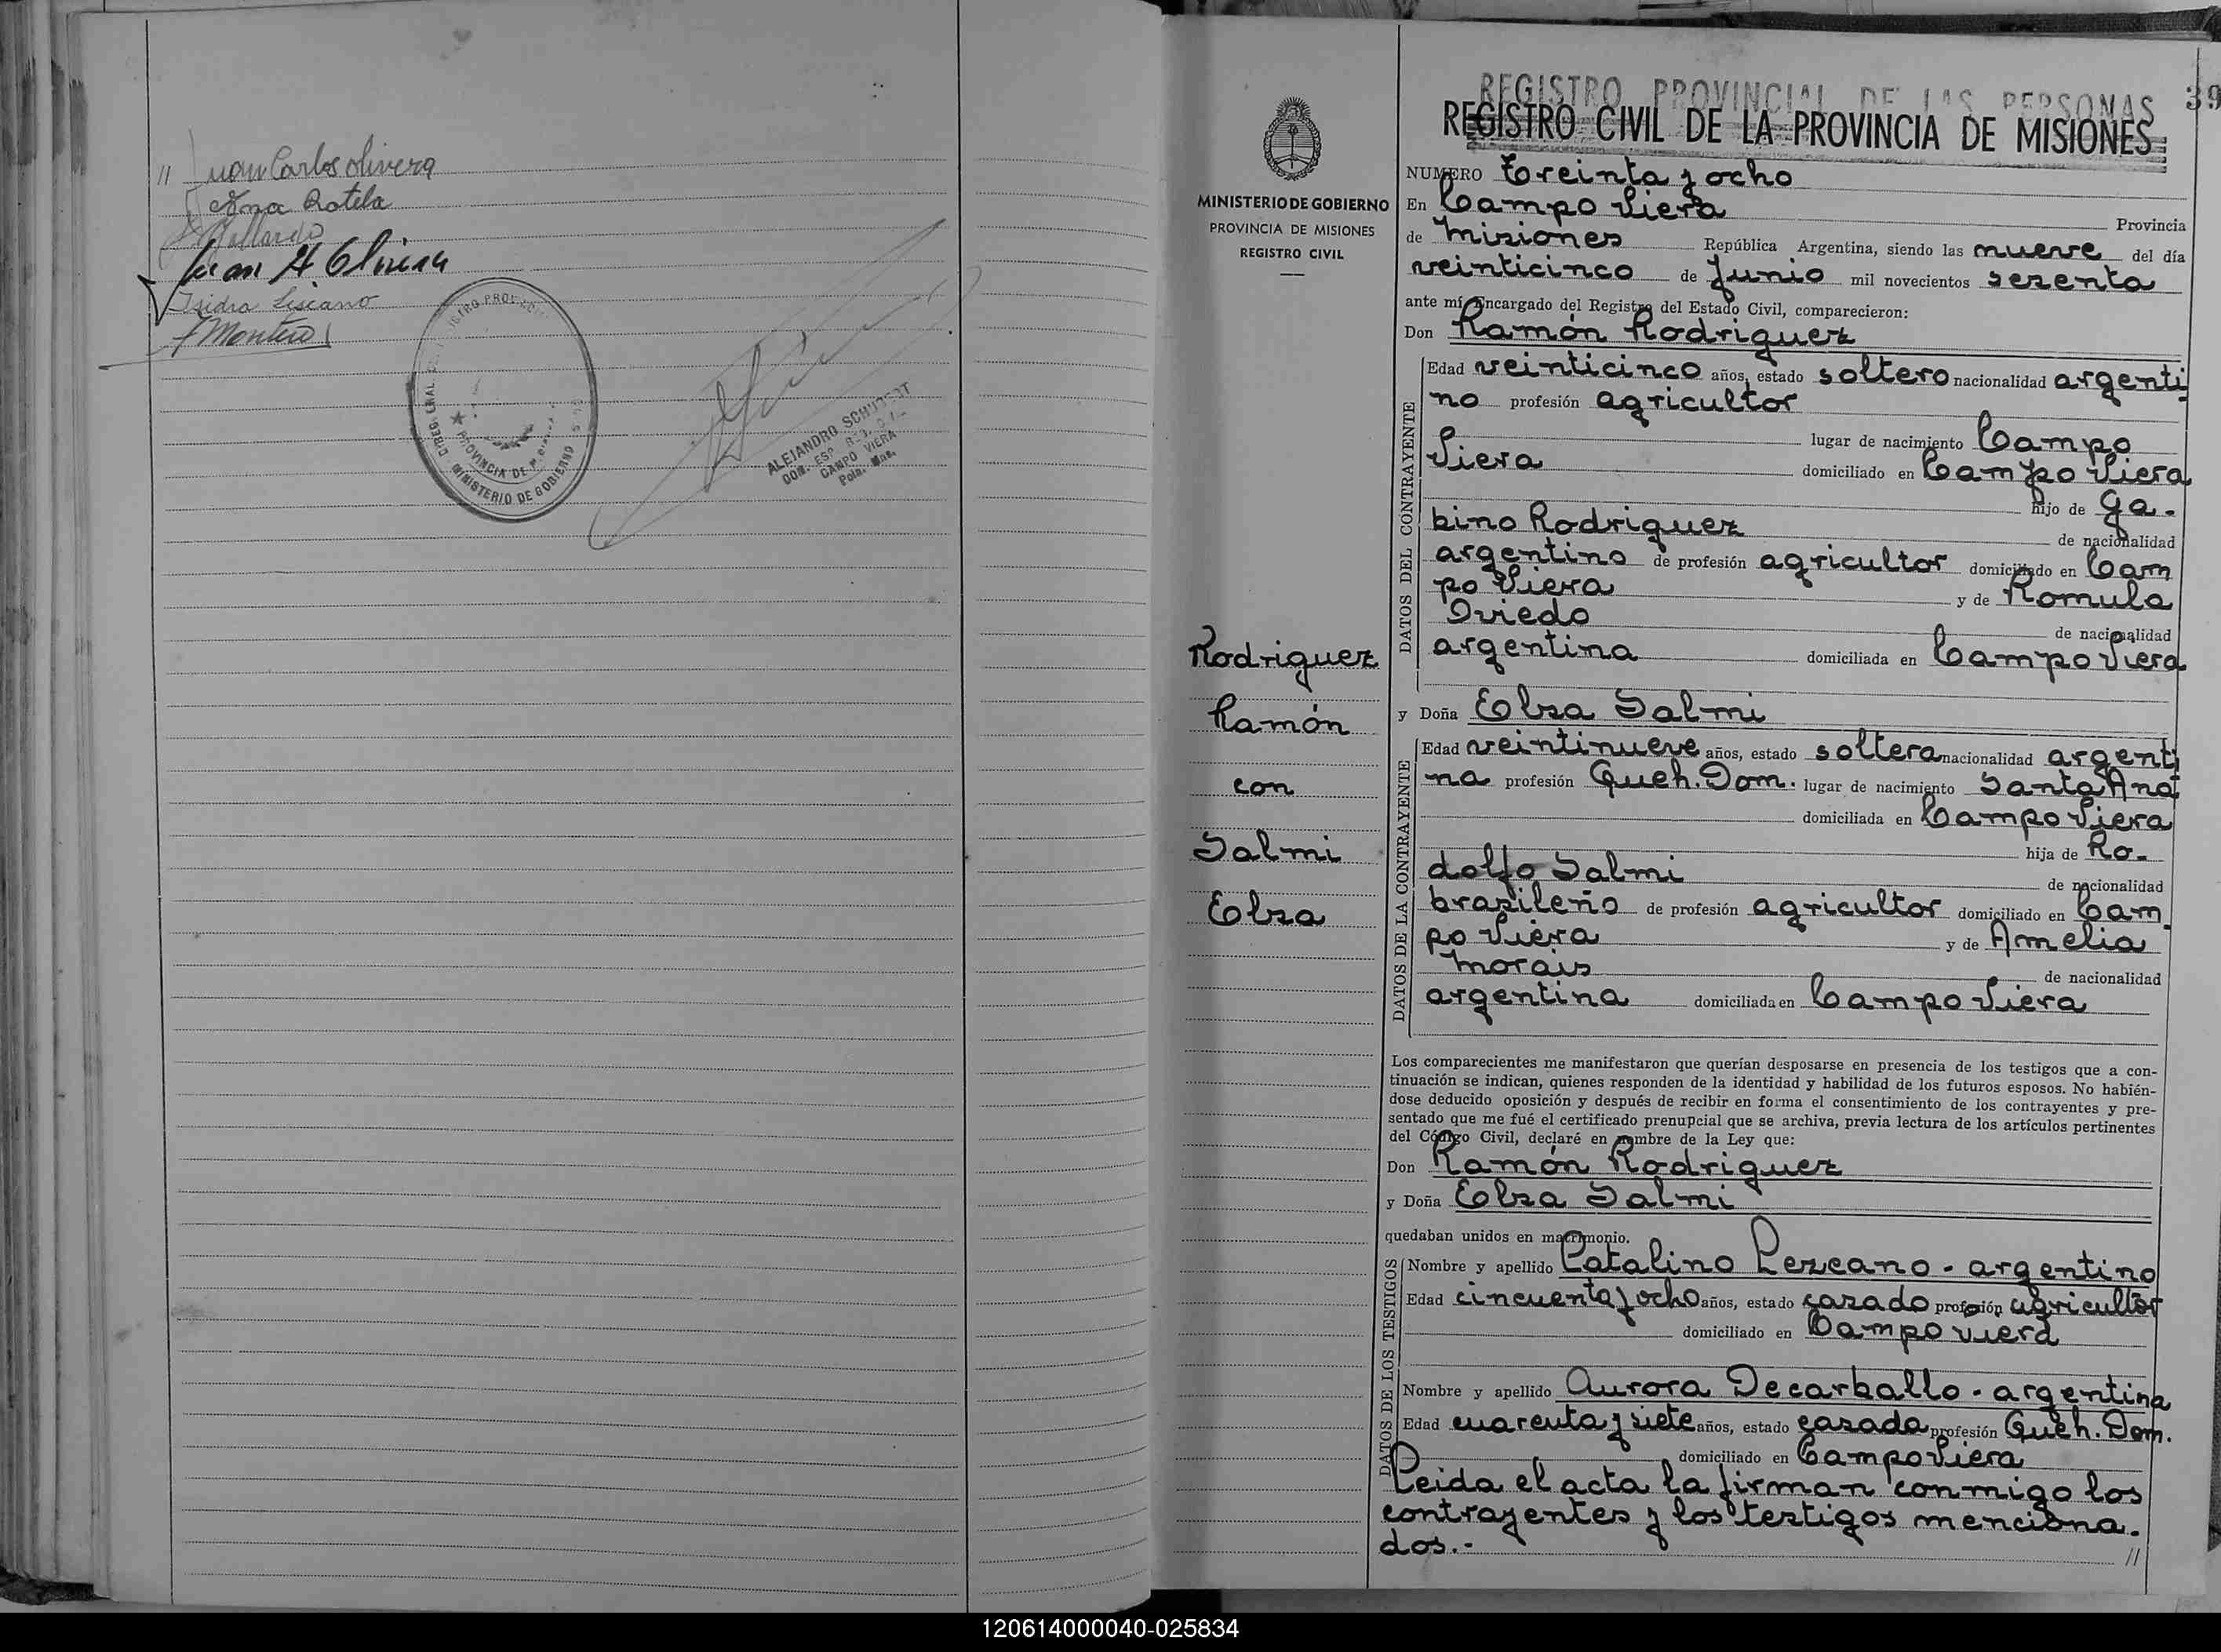 // Juan Carlos Olivera
Ana Rotela
Gallardo
Juan A Olivera
Isidro Liscano
Montero
PROVINCIA DE
MINISTERIO DE GOBIERNO
ALEJANDRO SCHMIDT
CAMPO VIERA
39
REGISTRO PROVINCIAL DE LAS PERSONAS
REGISTRO CIVIL DE LA PROVINCIA DE MISIONES
MINISTERIO DE GOBIERNO
PROVINCIA DE MISIONES
REGISTRO CIVIL
Rodriguez
Ramón
con
Salmi
Elsa
NUMERO Treinta y ocho
En Campo Viera Provincia
de Misiones República Argentina, siendo las nueve del día
veinticinco de Junio mil novecientos sesenta
ante mí Encargado del Registro del Estado Civil, comparecieron:
Don Ramón Rodriguez
DATOS DEL CONTRAYENTE
Edad veinticinco años, estado soltero nacionalidad argenti
no profesión agricultor
lugar de nacimiento Campo
Viera domiciliado en Campo Viera
hijo de Ga-
bino Rodriguez de nacionalidad
argentino de profesión agricultor domiciliado en Cam
po Viera y de Romula
Oviedo de nacionalidad
argentina domiciliada en Campo Viera
y Doña Elsa Salmi
DATOS DE LA CONTRAYENTE
Edad veintinueve años, estado soltera nacionalidad argenti
na profesión Queh. Dom. lugar de nacimiento Santa Ana
domiciliada en Campo Viera
hija de Ro-
dolfo Salmi de nacionalidad
brasileño de profesión agricultor domiciliado en Cam
po Viera y de Amelia
Morais de nacionalidad
argentina domiciliada en Campo Viera
Los comparecientes me manifestaron que querían desposarse en presencia de los testigos que a con-
tinuación se indican, quienes responden de la identidad y habilidad de los futuros esposos. No habién-
dose deducido oposición y después de recibir en forma el consentimiento de los contrayentes y pre-
sentado que me fué el certificado prenupcial que se archiva, previa lectura de los artículos pertinentes
del Código Civil, declaré en nombre de la Ley que:
Don Ramón Rodriguez
y Doña Elsa Salmi
quedaban unidos en matrimonio.
DATOS DE LOS TESTIGOS
Nombre y apellido Catalino Lezcano - argentino
Edad cincuenta y ocho años, estado casado profesión agricultor
domiciliado en Campo Viera
Nombre y apellido Aurora Decarballo - argentina
Edad cuarenta y siete años, estado casada profesión Queh. Dom.
domiciliado en Campo Viera
Leida el acta la firman conmigo los
contrayentes y los testigos menciona-
dos.- //
120614000040-025834